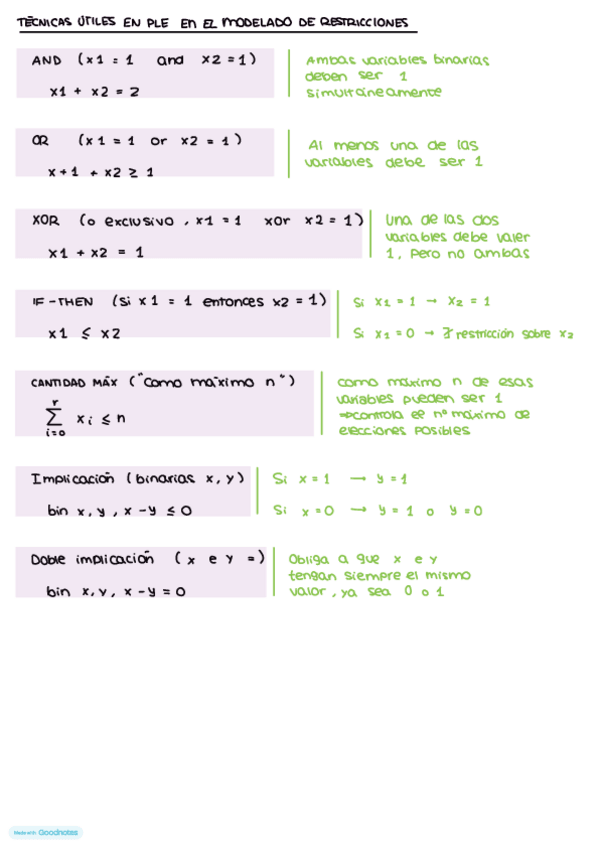 TÉCNICAS ÚTILES EN PLE EN EL MODELADO DE RESTRICCIONES
AND (x1 = 1 and x2 = 1)
x1 + x2 = 2
Ambas variables binarias
deben ser 1
simultáneamente
OR (x1 = 1 or x2 = 1)
x+1 + x2 ≥ 1
Al menos una de las
variables debe ser 1
XOR (o exclusivo, x1 = 1 xor x2 = 1)
x1 + x2 = 1
Una de las dos
variables debe valer
1, pero no ambas
IF-THEN (Si x1 = 1 entonces x2 = 1)
x1 ≤ x2
Si x1 = 1 → x2 = 1
Si x1 = 0 → ∄ restricción sobre x2
CANTIDAD MÁX ("como máximo n")
r
∑ xi ≤ n
i=0
Como máximo n de esas
variables pueden ser 1
⇒controla el nº máximo de
elecciones posibles
Implicación (binarias x, y)
bin x, y, x - y ≤ 0
Si x = 1 → y = 1
Si x = 0 → y = 1 o y = 0
Doble implicación (x e y =)
bin x, y, x - y = 0
Obliga a que x e y
tengan siempre el mismo
valor, ya sea 0 o 1
Made with Goodnotes